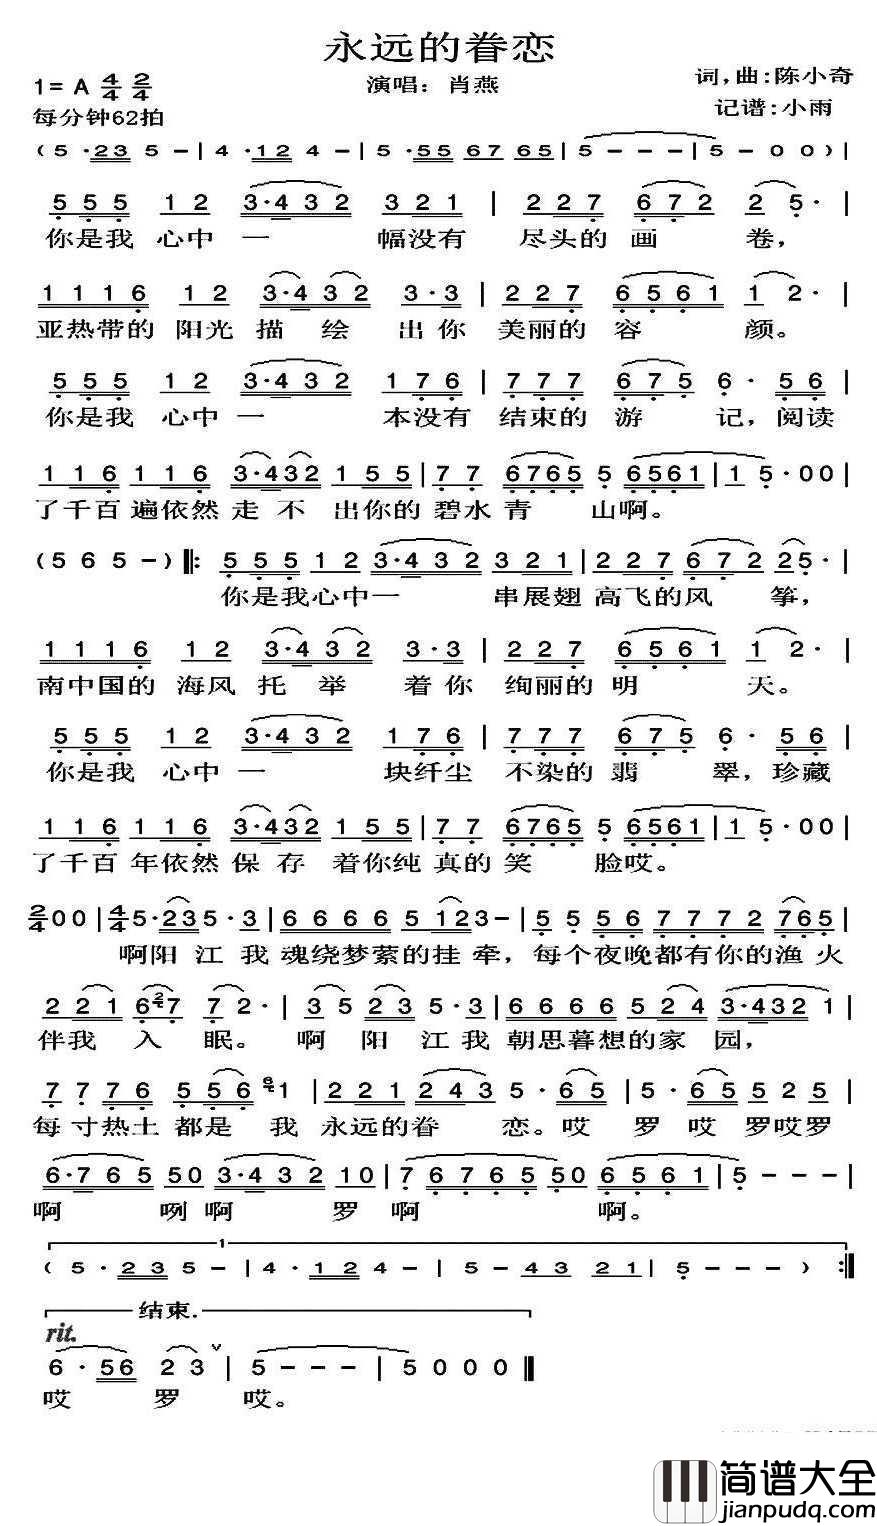 永远的眷恋
1= A 4/4 2/4
演唱：肖燕
词,曲:陈小奇
每分钟62拍
记谱:小雨
( 5 · 23 5 - | 4 · 12 4 - | 5 · 55 67 65 | 5 - - - | 5 - 0 0 ) |
5 5 5 1 2 3·4 3 2 3 2 1 | 2 2 7 6 7 2 2 5 · |
你是我 心中 一 幅没有 尽头的 画 卷，
1 1 1 6 1 2 3·4 3 2 3·3 | 2 2 7 6 5 6 1 1 2 · |
亚热带的 阳光 描 绘 出 你 美丽的 容 颜。
5 5 5 1 2 3·4 3 2 1 7 6 | 7 7 7 6 7 5 6 · 5 6 |
你是我 心中 一 本没有 结束的 游 记，阅读
1 1 6 1 1 6 3·432 1 5 5 | 7 7 6765 5 6561 | 1 5·00 |
了千百 遍依然 走 不 出你的 碧水 青 山啊。
( 5 6 5 - ) ‖: 5 5 5 1 2 3·4 3 2 3 2 1 | 2 2 7 6 7 2 2 5 · |
你是我心中一 串展翅 高飞的风 筝，
1 1 1 6 1 2 3·4 3 2 3·3 | 2 2 7 6 5 6 1 1 2 · |
南中国的 海风 托 举 着 你 绚丽的 明 天。
5 5 5 1 2 3·4 3 2 1 7 6 | 7 7 7 6 7 5 6 · 5 6 |
你是我 心中 一 块纤尘 不染的 翡 翠，珍藏
1 1 6 1 1 6 3·432 1 5 5 | 7 7 6765 5 6561 | 1 5·00 |
了千百 年依然 保 存 着你纯 真的 笑 脸哎。
2/4 0 0 | 4/4 5·235·3 | 6 6 6 6 5 123- | 5 5 5 6 7 7 7 2 765 |
啊阳 江 我 魂绕梦萦的挂 牵，每个夜晚都有你的渔 火
2 2 1 6 27 7 2 · | 3 5 2 3 5 · 3 | 6 6 6 6 5 2 4 3·432 1 |
伴我 入 眠。 啊 阳 江 我 朝思暮想的家 园，
7 7 7 6 5 5 6 61 | 2 2 1 2 4 3 5 · 6 5 | 5 · 6 5 5 2 5 |
每 寸热土 都是 我 永远的眷 恋。哎 罗 哎 罗哎罗
6·7 6 5 50 3·4 3 2 10 | 7 6 7 6 5 50 6 5 6 1 | 5 - - - |
啊 咧 啊 罗 啊 啊。
1
( 5 · 2 3 5 - | 4 · 1 2 4 - | 5 - 4 3 2 1 | 5 - - - ) :‖
结束.
rit.
6 · 56 2 3 ˇ | 5 - - - | 5 0 0 0 ‖
哎 罗 哎。
简谱大全
jianpudq.com